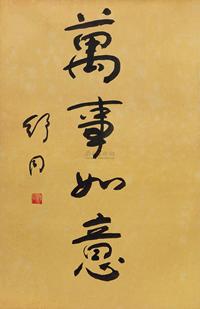 萬事如意
舒同